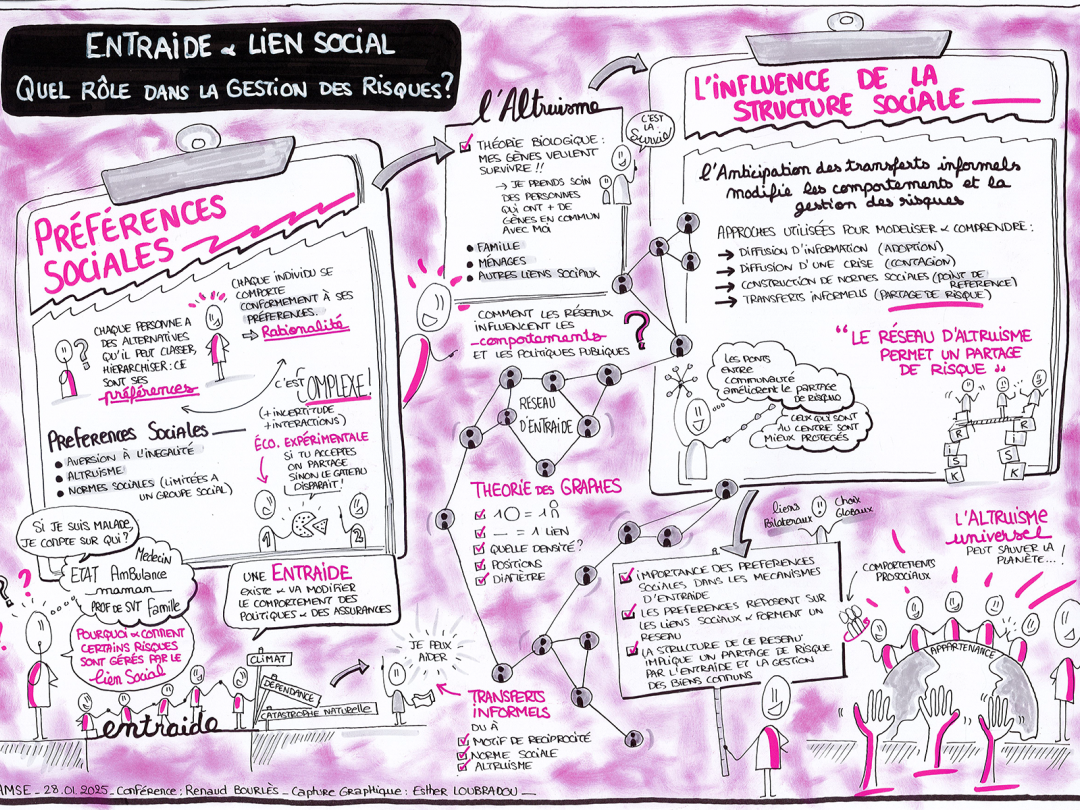 ENTRAIDE & LIEN SOCIAL
QUEL RÔLE DANS LA GESTION DES RISQUES?
PRÉFÉRENCES
SOCIALES
CHAQUE INDIVIDU SE
COMPORTE
CONFORMEMENT À SES
PRÉFERENCES.
→ Rationalité
CHAQUE PERSONNE A
DES ALTERNATIVES
QU'IL PEUT CLASSER,
HIERARCHISER : CE
SONT SES
préférences
?
C'EST COMPLEXE!
(+ INCERTITUDE
+ INTERACTIONS)
PREFERENCES SOCIALES
• AVERSION À L'INEGALITE
• ALTRUISME
• NORMES SOCIALES (LIMITÉES A
UN GROUPE SOCIAL)
ÉCO. EXPÉRIMENTALE
SI TU ACCEPTES
ON PARTAGE
SINON LE GATEAU
DISPARAIT!
1
2
SI JE SUIS MALADE,
JE COMPTE SUR QUI?
Medecin
ETAT Ambulance
maman
PROF DE SVT Famille
POURQUOI & COMMENT
CERTAINS RISQUES
SONT GÉRÉS PAR LE
lien Social
UNE ENTRAIDE
EXISTE & VA MODIFIER
LE COMPORTEMENT DES
POLITIQUES & DES ASSURANCES
entraide
CLIMAT
DÉPENDANCE
CATASTROPHE NATURELLE
JE PEUX
AIDER
l'Altruisme
THÉORIE BIOLOGIQUE :
MES GÈNES VEULENT
SURVIVRE !!
→ JE PRENDS SOIN
DES PERSONNES
QUI ONT + DE
GÈNES EN COMMUN
AVEC MOI
• FAMILLE
• MÉNAGES
• AUTRES LIENS SOCIAUX
C'EST
LA
Survie
COMMENT LES RÉSEAUX
INFLUENCENT LES
comportements
ET LES POLITIQUES PUBLIQUES
?
RÉSEAU
D'ENTRAIDE
THEORIE DES GRAPHES
= 1 LIEN
QUELLE DENSITÉ?
POSITIONS
DIAMÈTRE
TRANSFERTS
INFORMELS
DU À
MOTIF DE RECIPROCITÉ
NORME SOCIALE
ALTRUISME
L'INFLUENCE DE LA
STRUCTURE SOCIALE
l'Anticipation des transferts informels
modifie les comportements et la
gestion des risques
APPROCHES UTILISÉES POUR MODELISER & COMPRENDRE :
→ DIFFUSION D'INFORMATION (ADOPTION)
→ DIFFUSION D'UNE CRISE (CONTAGION)
→ CONSTRUCTION DE NORMES SOCIALES (POINT DE
REFERENCE)
→ TRANSFERTS INFORMELS (PARTAGE DE RISQUE)
"LE RÉSEAU D'ALTRUISME
PERMET UN PARTAGE
DE RISQUE"
LES PONTS
ENTRE
COMMUNAUTÉ
AMÉLIORENT LE PARTAGE
DE RISQUE
CEUX QUI SONT
AU CENTRE SONT
MIEUX PROTEGÉS
RISK
RISK
liens
Bilateraux
Choix
Globaux
IMPORTANCE DES PREFERENCES
SOCIALES DANS LES MECANISMES
D'ENTRAIDE
LES PREFERENCES REPOSENT SUR
LES LIENS SOCIAUX & FORMENT UN
RESEAU
LA STRUCTURE DE CE RESEAU
IMPLIQUE UN PARTAGE DE RISQUE
PAR L'ENTRAIDE ET LA GESTION
DES BIENS COMMUNS
COMPORTEMENTS
PROSOCIAUX
L'ALTRUISME
universel
PEUT SAUVER LA
PLANÈTE...!
APPARTENANCE
AMSE _ 28.01.2025 _ Conférence : Renaud BOURLÈS _ Capture Graphique : Esther LOUBRADOU